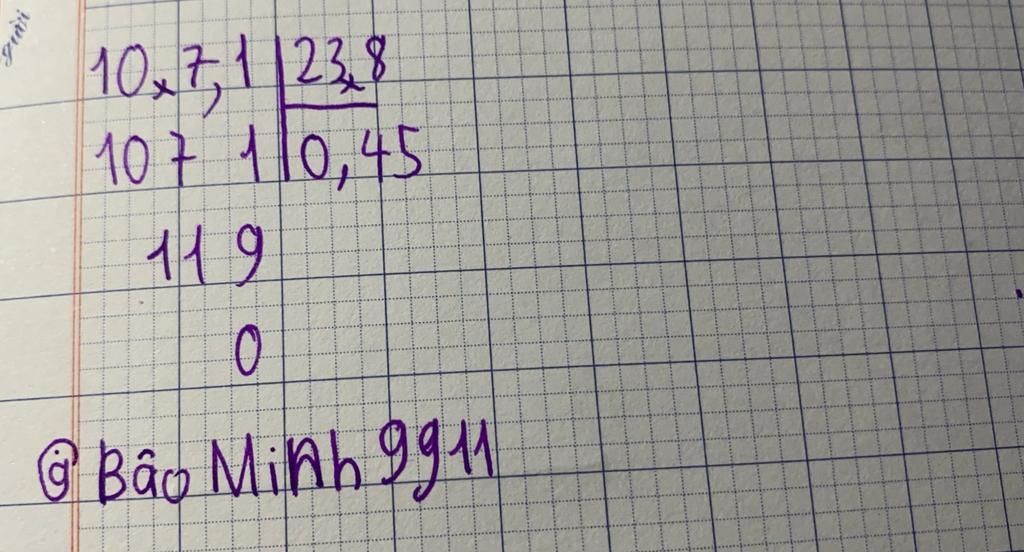 10,7,1 23,8
107 1 0,45
11 9
0
@ Bảo Minh 9911